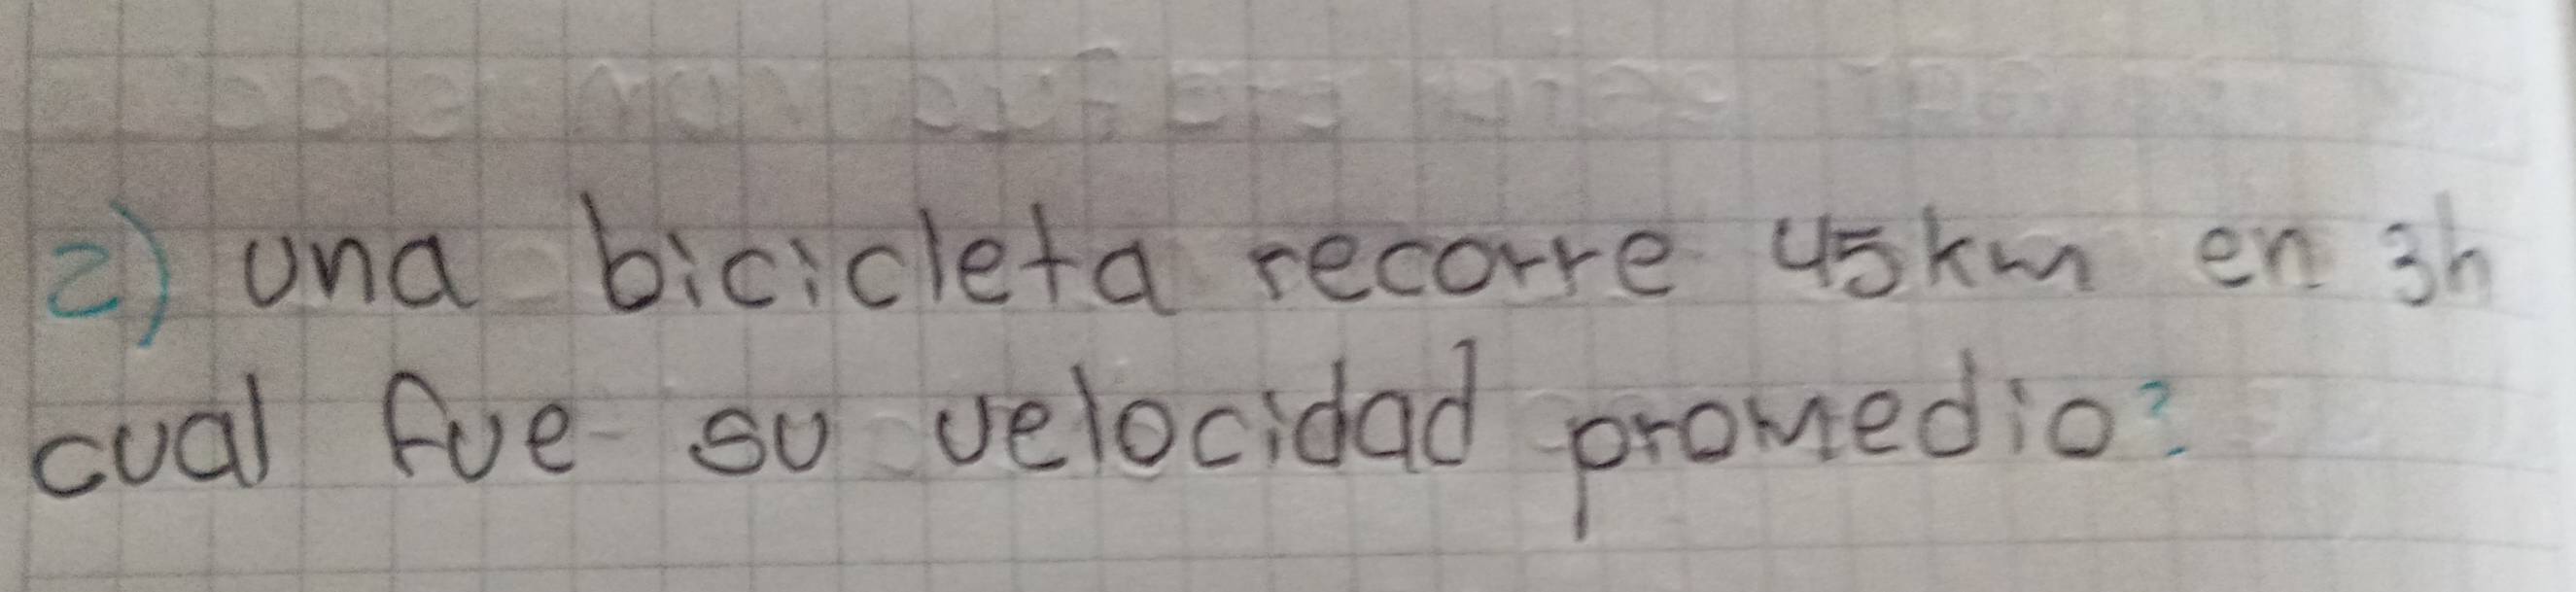 2) una bicicleta recorre 45km en 3h
cual fue su velocidad promedio?